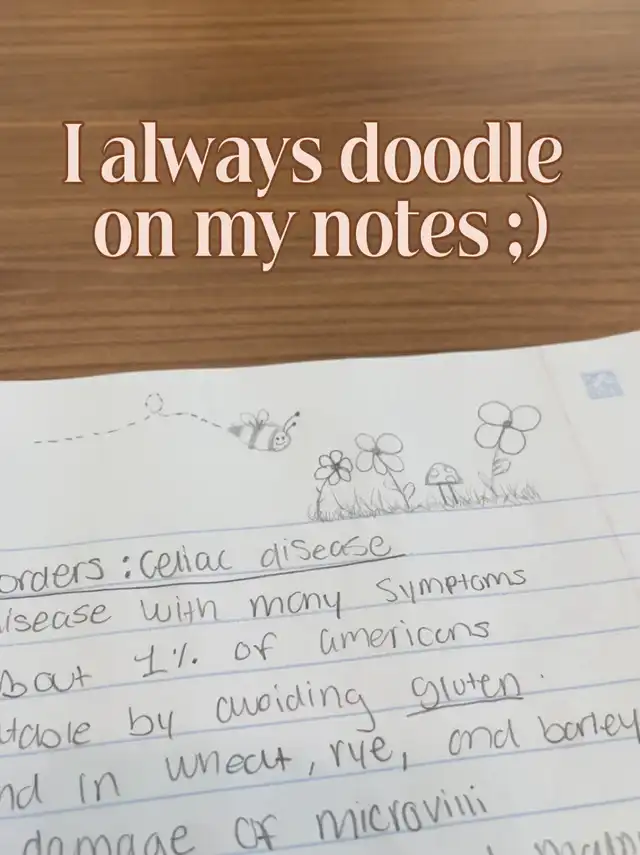 I always doodle
on my notes ;)
orders : celiac disease
isease with many symptoms
bout 1% of americans
table by avoiding gluten.
nd in wheat, rye, and barley
damage of microvilli